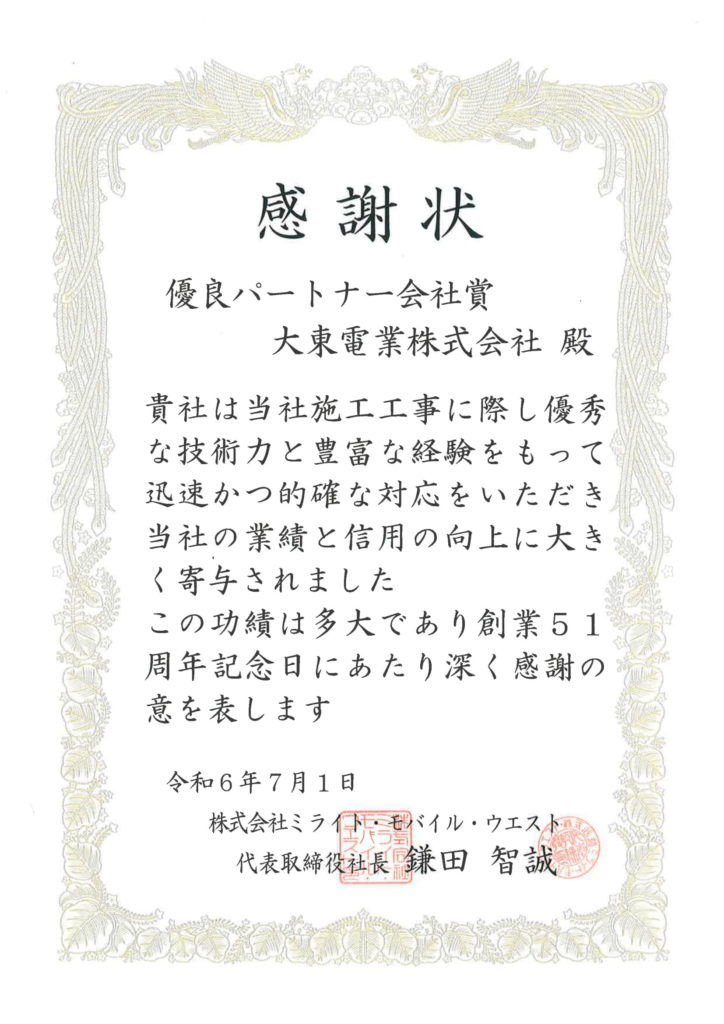 感謝状
優良パートナー会社賞
大東電業株式会社 殿
貴社は当社施工工事に際し優秀
な技術力と豊富な経験をもって
迅速かつ的確な対応をいただき
当社の業績と信用の向上に大き
く寄与されました
この功績は多大であり創業５１
周年記念日にあたり深く感謝の
意を表します
令和６年７月１日
株式会社ミライト・モバイル・ウエスト
代表取締役社長 鎌田 智誠